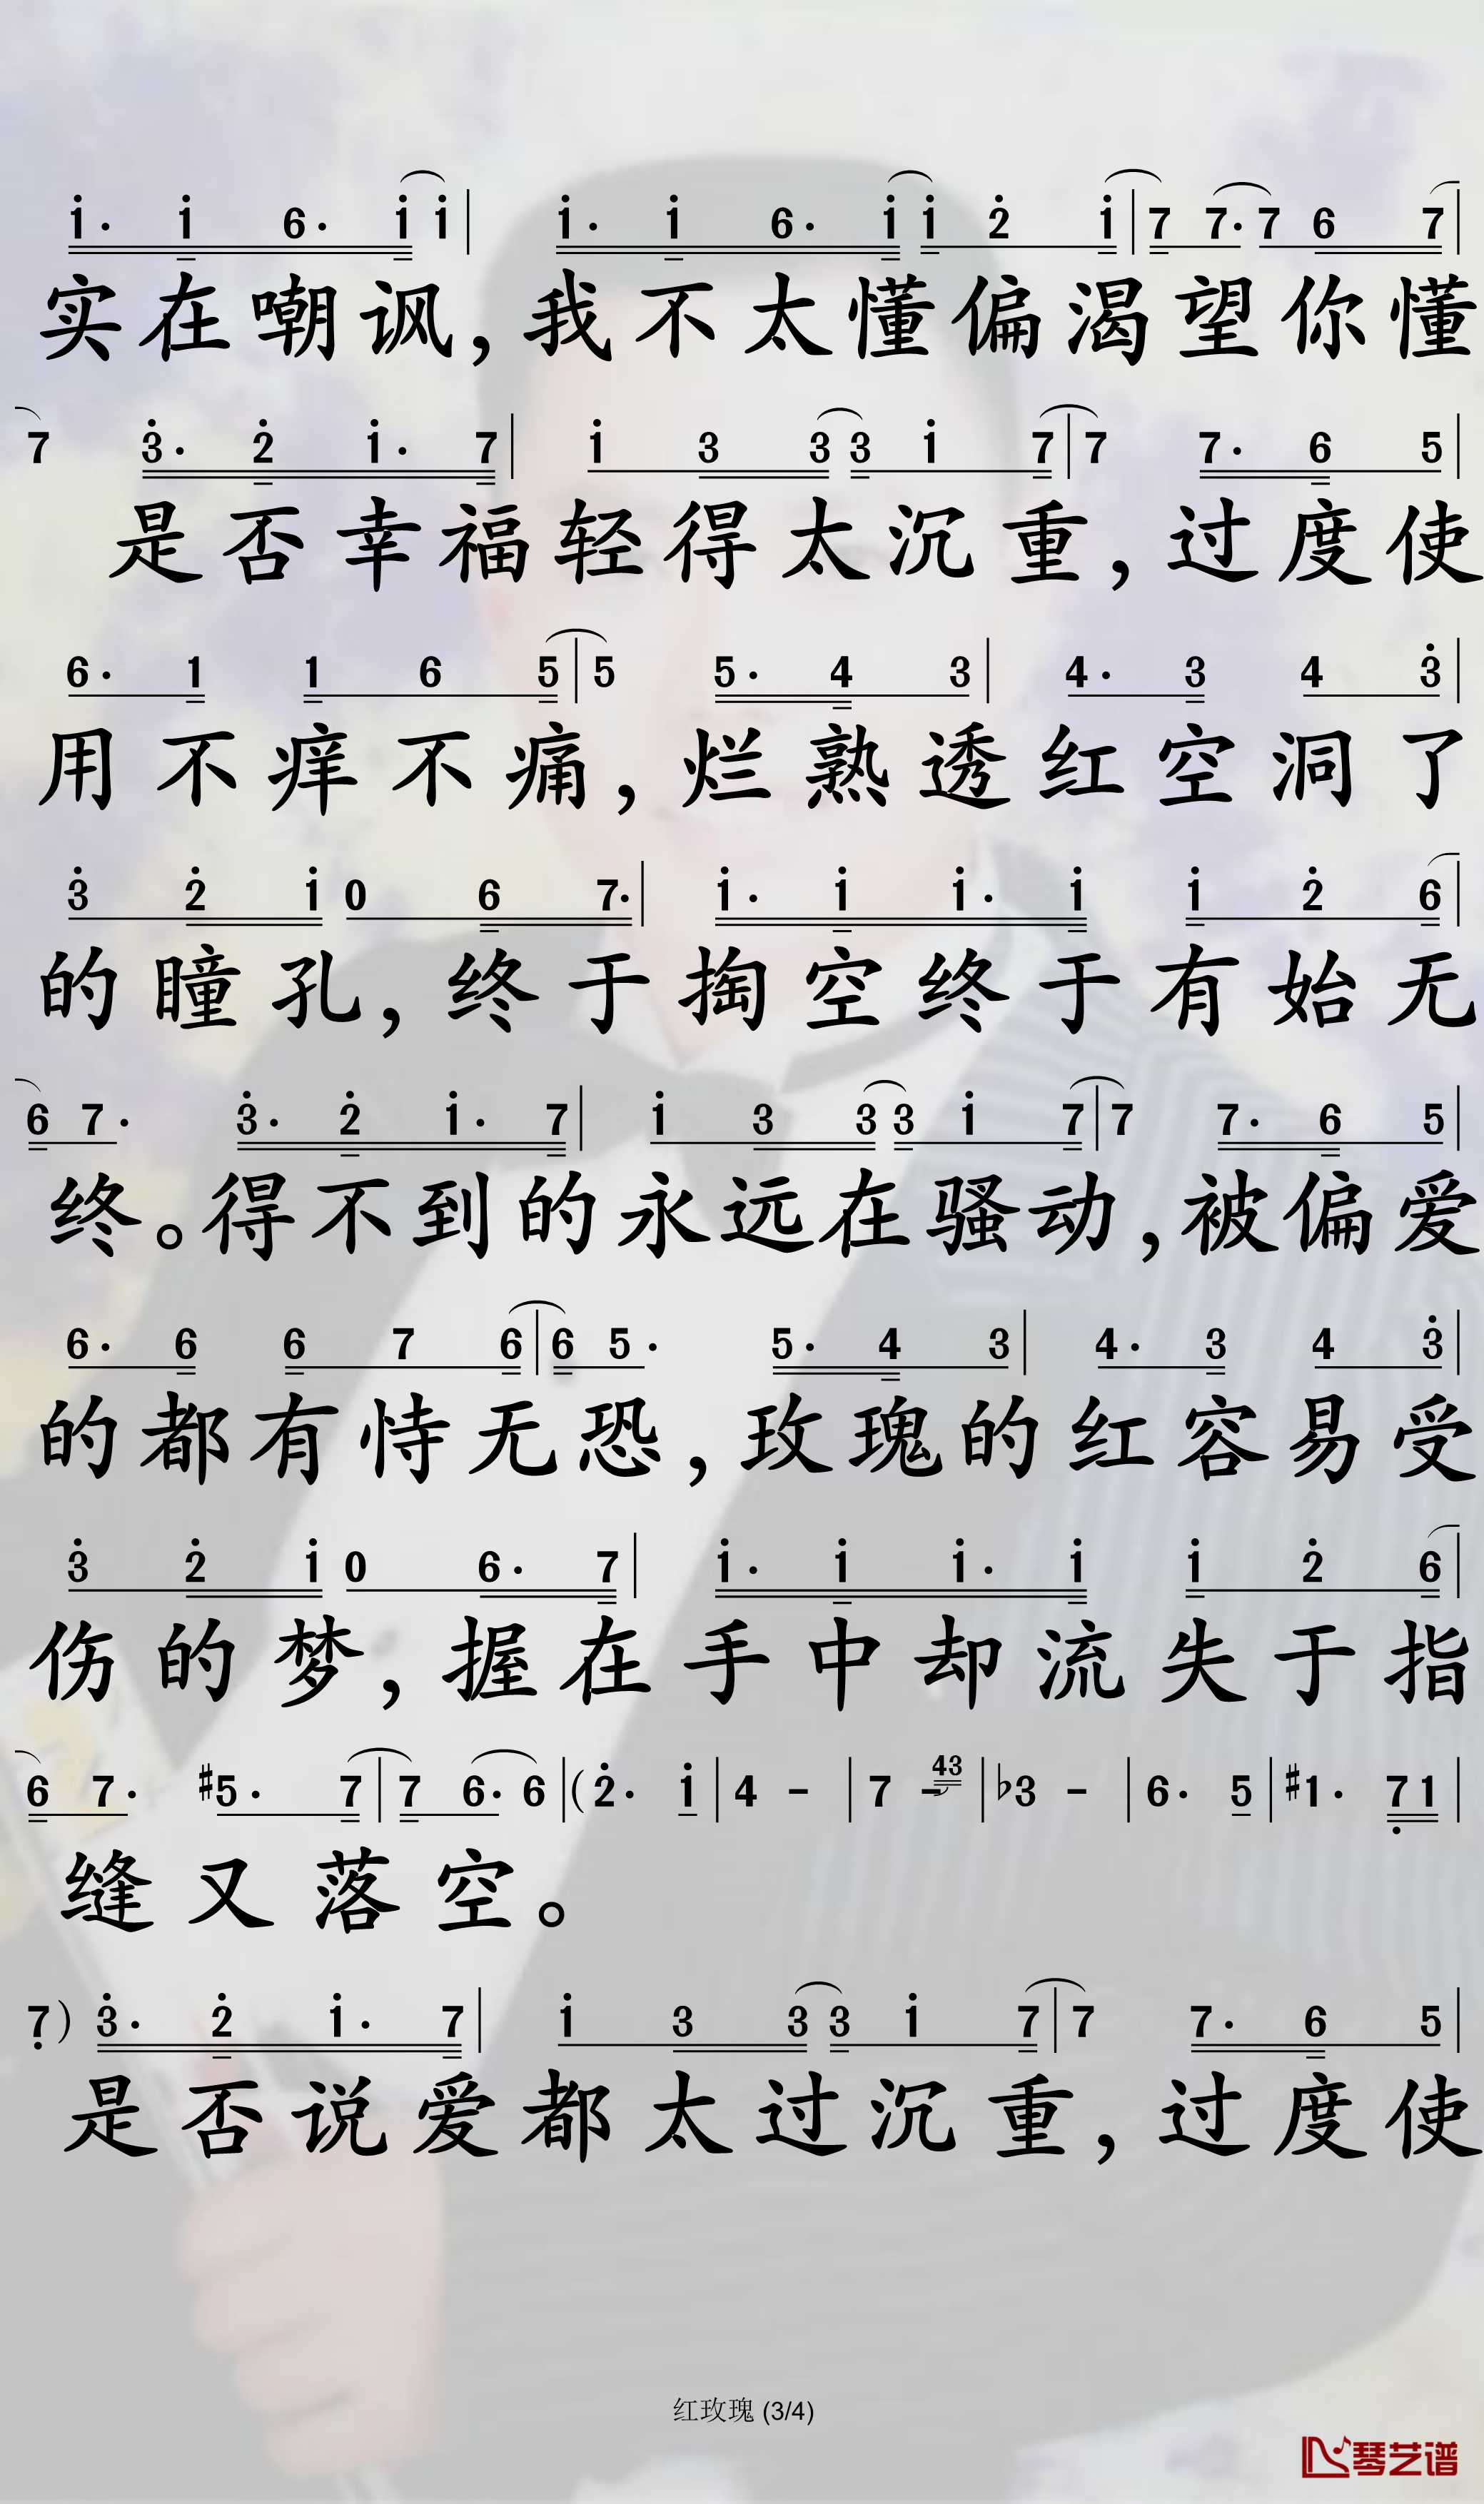 1̇. 1̇ 6. 1̇ 1̇ | 1̇. 1̇ 6. 1̇ 1̇ 2̇ 1̇ | 7 7. 7 6 7 |
实在嘲讽，我不太懂偏渴望你懂
7 3̇. 2̇ 1̇. 7 | 1̇ 3 3 3 1̇ 7 | 7 7. 6 5 |
是否幸福轻得太沉重，过度使
6. 1 1 6 5 | 5 5. 4 3 | 4. 3 4 3̇ |
用不痒不痛，烂熟透红空洞了
3̇ 2̇ 1̇ 0 6 7. | 1̇. 1̇ 1̇. 1̇ 1̇ 2̇ 6 |
的瞳孔，终于掏空终于有始无
6 7. 3̇. 2̇ 1̇. 7 | 1̇ 3 3 3 1̇ 7 | 7 7. 6 5 |
终。得不到的永远在骚动，被偏爱
6. 6 6 7 6 | 6 5. 5. 4 3 | 4. 3 4 3̇ |
的都有恃无恐，玫瑰的红容易受
3̇ 2̇ 1̇ 0 6. 7 | 1̇. 1̇ 1̇. 1̇ 1̇ 2̇ 6 |
伤的梦，握在手中却流失于指
6 7. #5. 7 | 7 6. 6 | (2̇. 1̇ | 4 - | 7 - 43 | ♭3 - | 6. 5 | #1. 7̣ 1 |
缝又落空。
7̣) 3̇. 2̇ 1̇. 7 | 1̇ 3 3 3 1̇ 7 | 7 7. 6 5 |
是否说爱都太过沉重，过度使
红玫瑰 (3/4)
琴艺谱